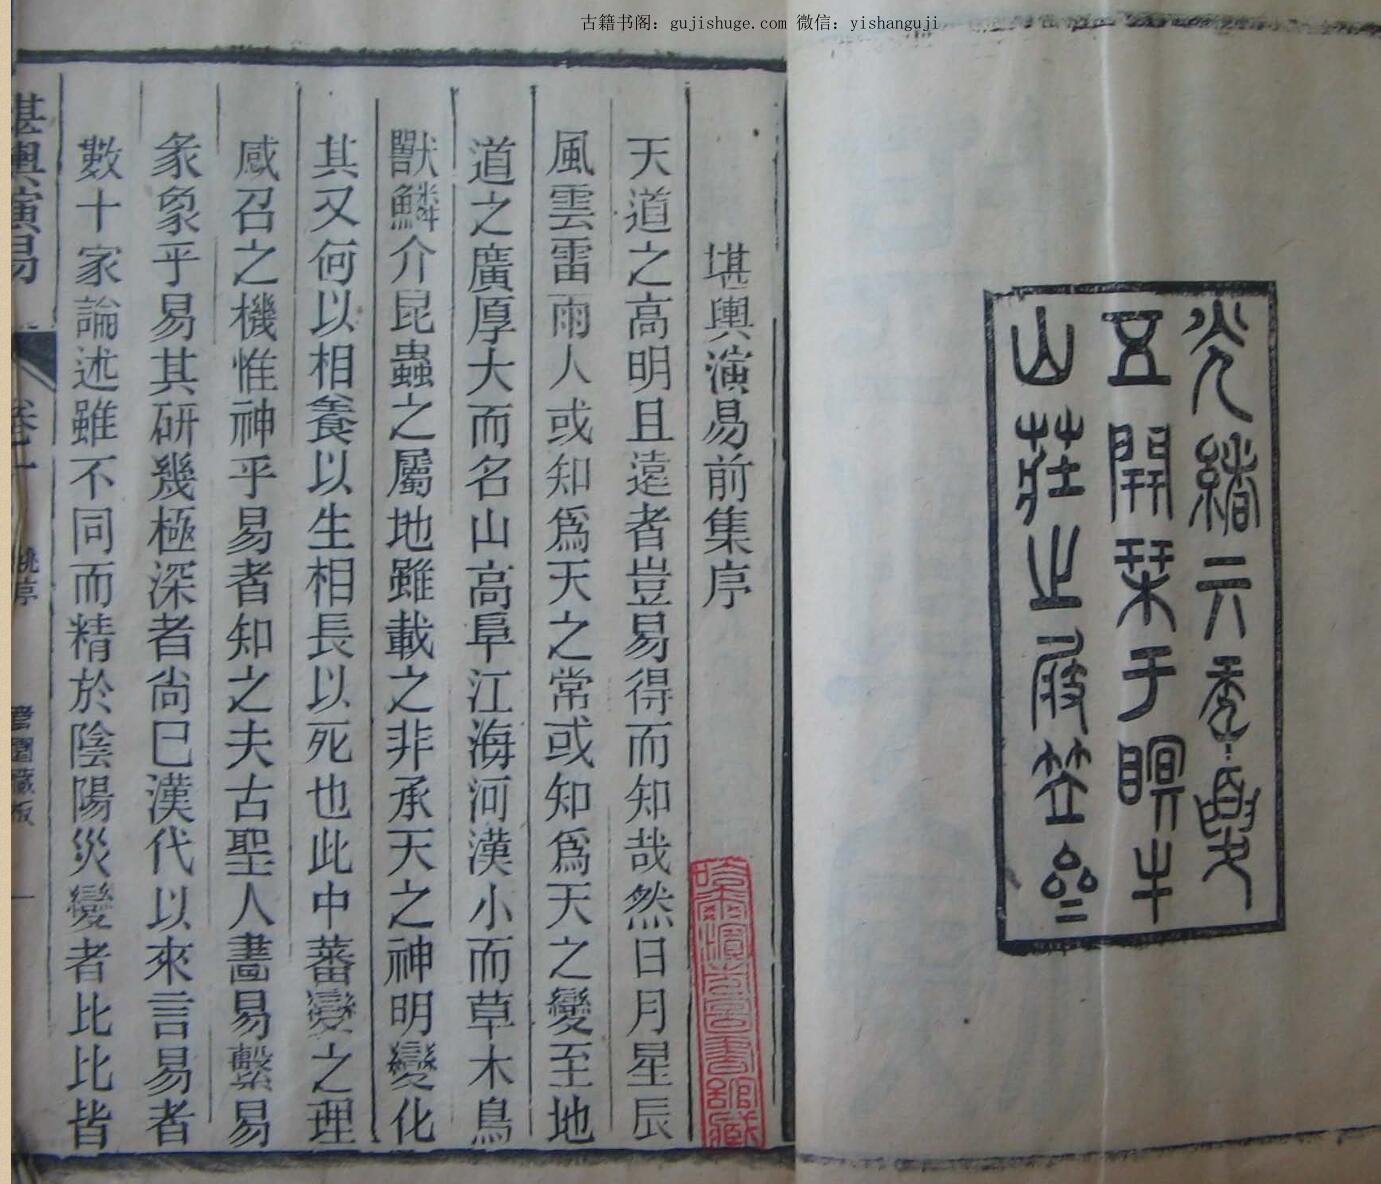 古籍书阁：gujishuge.com 微信：yishanguji
光緒六年歲
五開栞于瞑牛
山莊之
堪輿演易前集序
天道之高明且遠者豈易得而知哉然日月星辰
風雲雷雨人或知爲天之常或知爲天之變至地
道之廣厚大而名山高阜江海河漢小而草木鳥
獸鱗介昆蟲之屬地雖載之非承天之神明變化
其又何以相養以生相長以死也此中蕃變之理
感召之機惟神乎易者知之夫古聖人畫易繫易
彖象乎易其研幾極深者尚已漢代以來言易者
數十家論述雖不同而精於陰陽災變者比比皆
堪輿演易
卷一
姚序
藏板
一